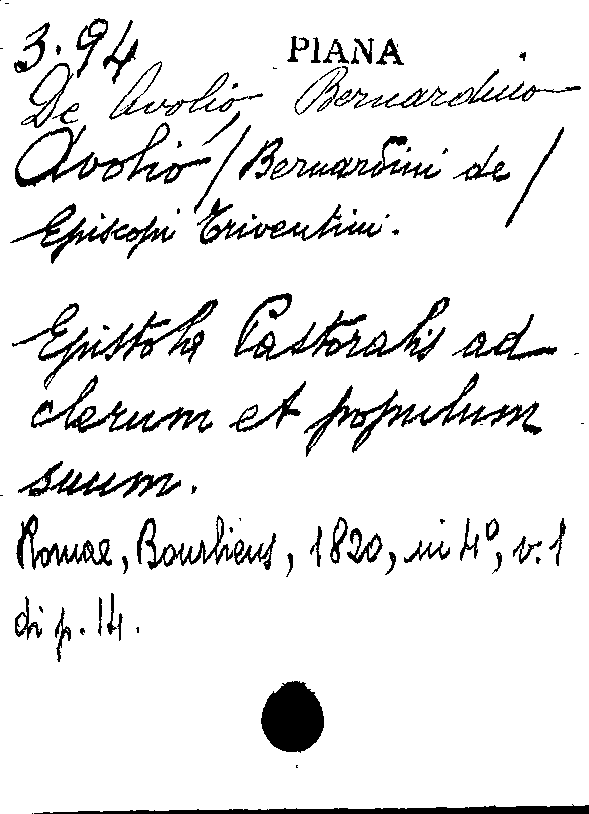 3.94 PIANA
De Avolio, Bernardino
Avolio / Bernardini de /
Episcopi Triventini.
Epistola Pastoralis ad
clerum et populum
suum.
Romae, Bourlieus, 1820, in 4º, v. 1
di p. 14.